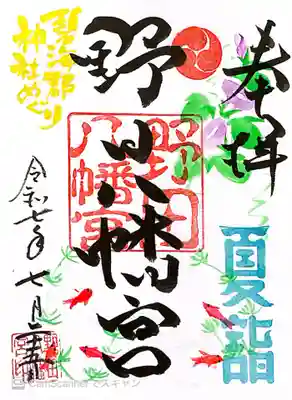 奉拝
夏詣
野田八幡宮
野田
八幡宮
碧海郡
神社めぐり
令和七年七月二十五日
CamScanner でスキャン